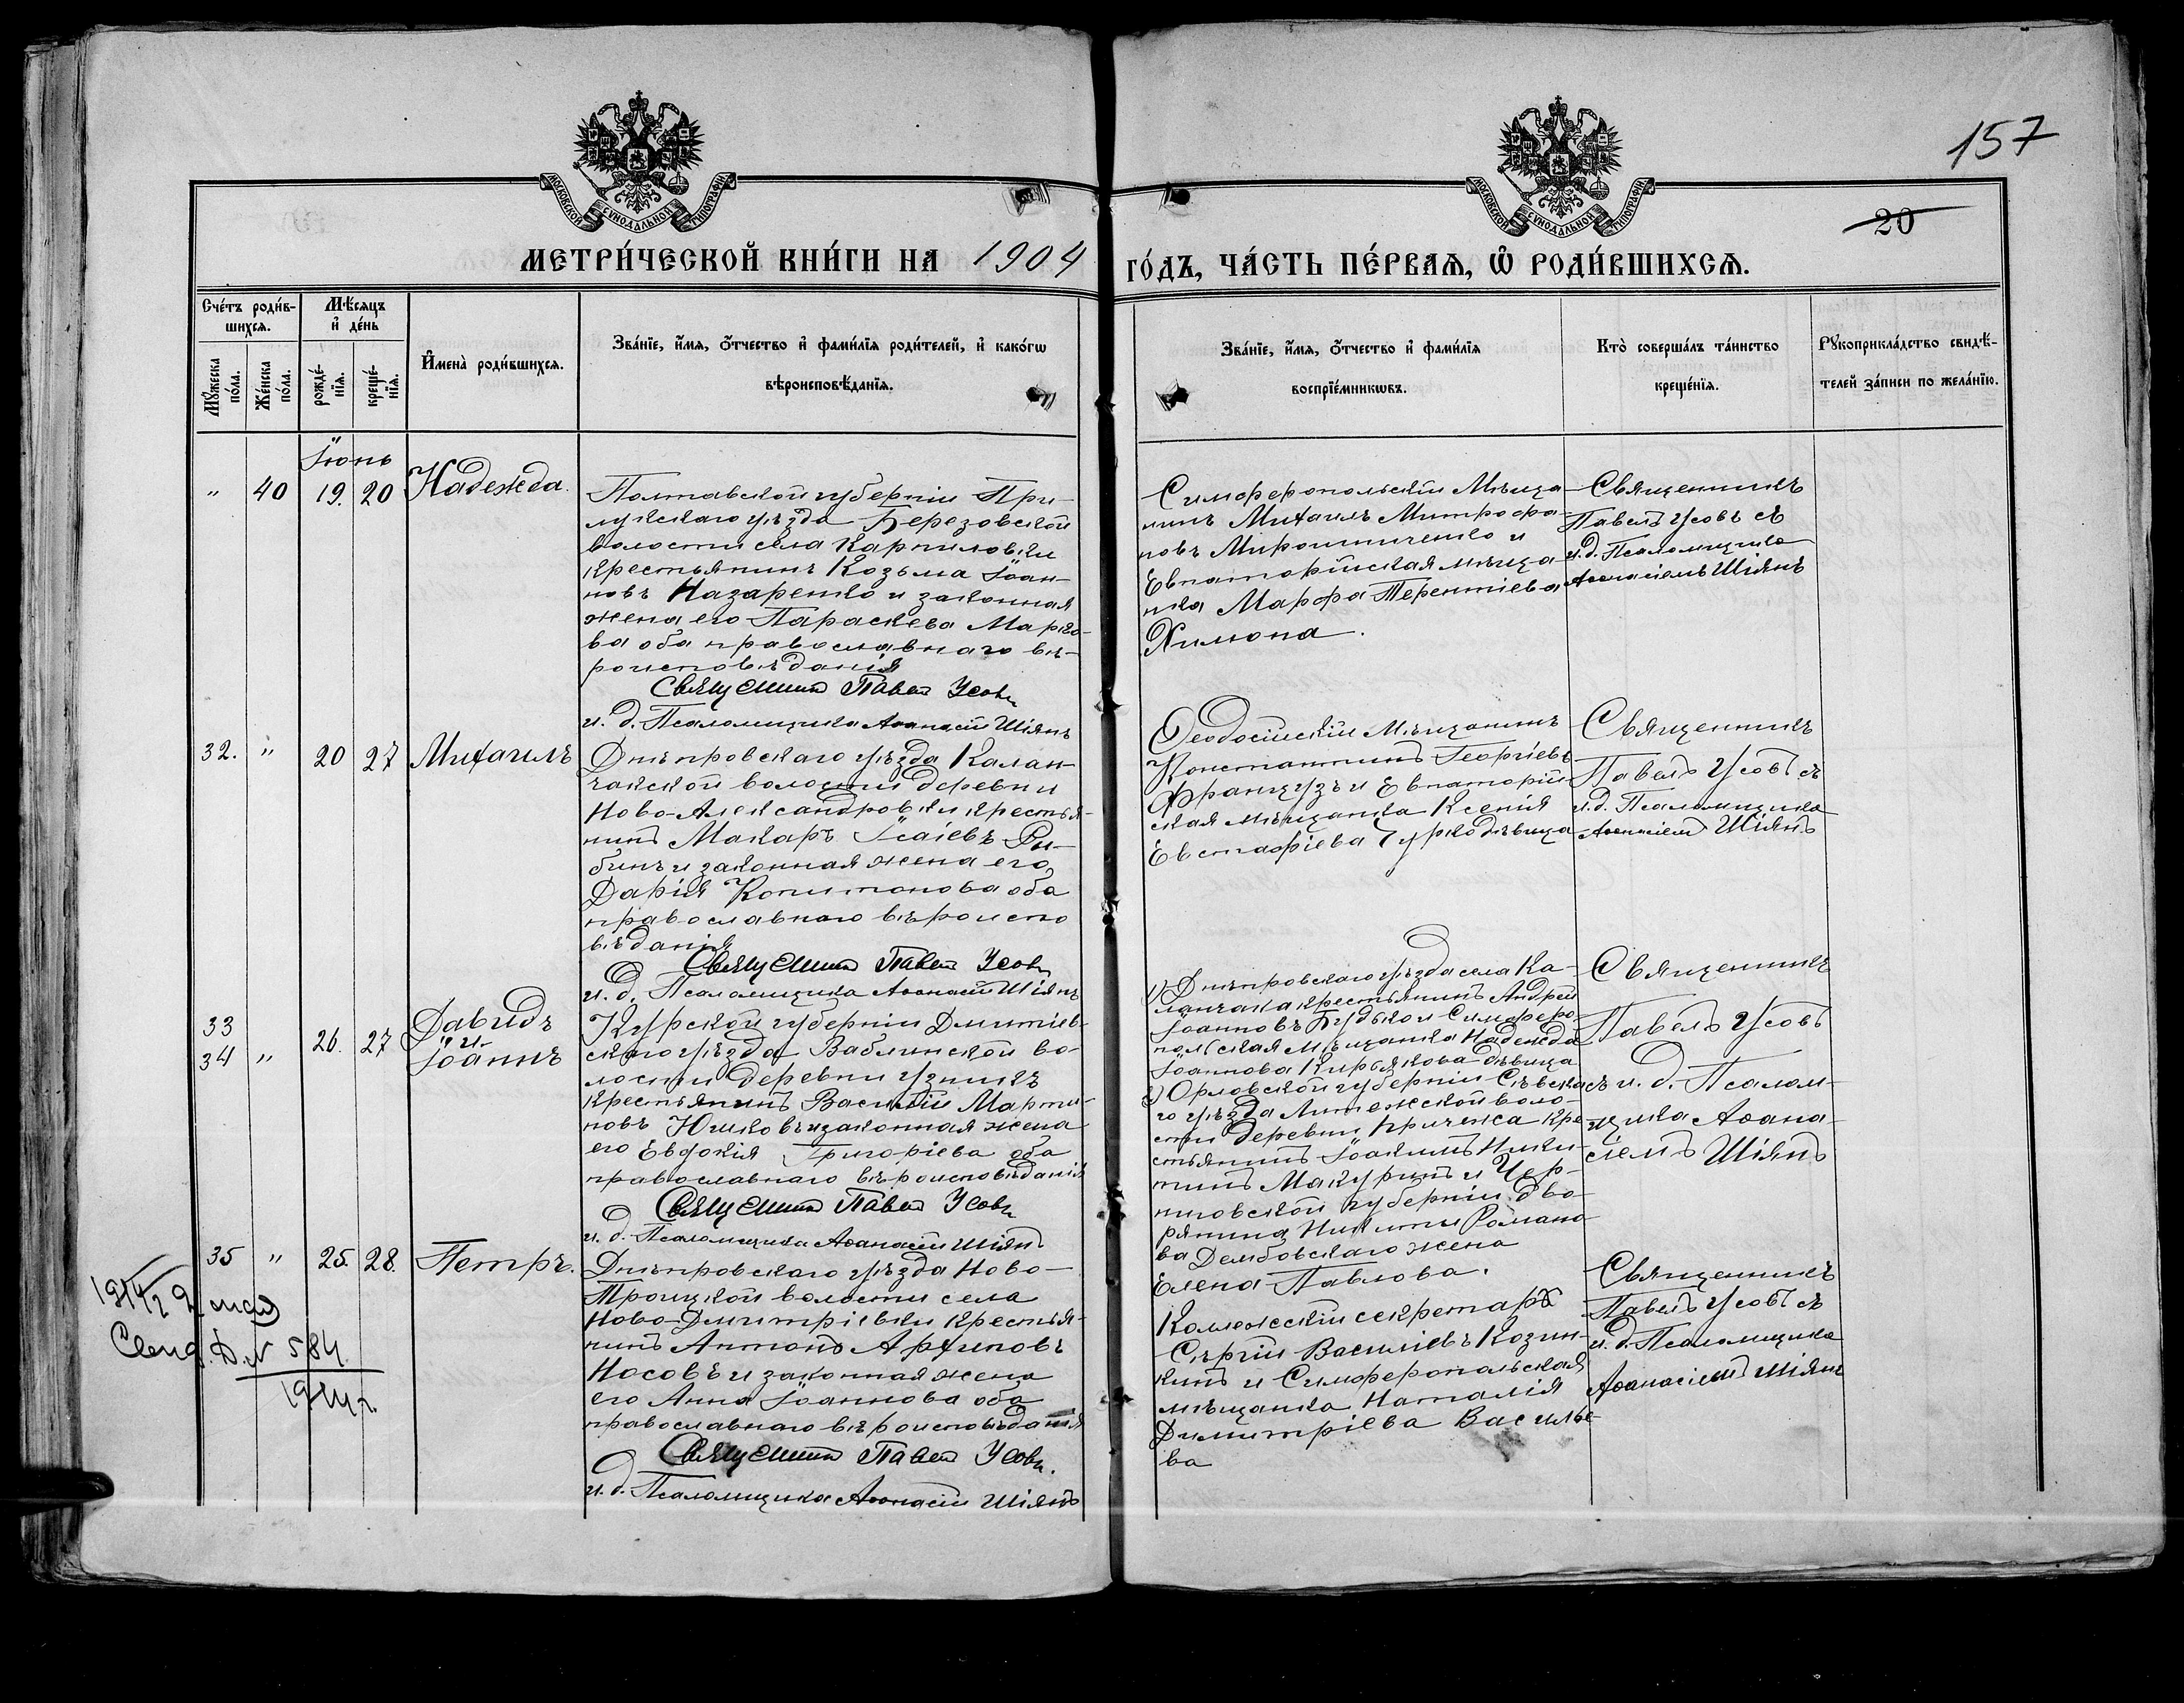 157
20
МОСКОВСКОЙ СѴНОДАЛЬНОЙ ТИПОГРАФІИ
МОСКОВСКОЙ СѴНОДАЛЬНОЙ ТИПОГРАФІИ
МЕТРИ́ЧЕСКОЙ КНИ́ГИ НА 1904 ГО́ДЪ, ЧА́СТЬ ПЕ́РВАѦ, Ѡ҆ РОДИ́ВШИХСѦ.
Сче́тъ роди́в-
шихсѧ.
Мѣ́сѧцъ
и҆ де́нь
Мꙋ́жеска
по́ла.
Же́нска
по́ла.
рожде́-
нїѧ.
креще́-
нїѧ.
И҆мена̀ роди́вшихсѧ.
Зва́нїе, и҆́мѧ, ѻ҆́тчество и҆ фами́лїѧ роди́телей, и҆ како́гѡ
вѣроисповѣ́данїѧ.
Зва́нїе, и҆́мѧ, ѻ҆́тчество и҆ фами́лїѧ
воспрїе́мникѡвъ.
Кто̀ соверша́лъ та́инство
креще́нїѧ.
Рꙋкоприкла́дство свидѣ́-
телей за́писи по жела́нїю.
Іюнь
" 40 19. 20 Надежда.
Полтавской губерніи При-
лукскаго уѣзда Березовской
волости села Карпиловки
крестьянинъ Козьма Іоан-
новъ Назаренко и законная
жена его Параскева Марко-
ва оба православнаго вѣ-
роисповѣданія
Священникъ Павелъ Усовъ
и. д. Псаломщика Аѳанасій Шіянъ
Симферопольскій Мѣща-
нинъ Михаилъ Митрофа-
новъ Мирошниченко и
Евпаторійская мѣща-
нка Марфа Терентіева
Химона.
Священникъ
Павелъ Усовъ съ
и. д. Псаломщика
Аѳанасіемъ Шіянъ
32. " 20 27 Михаилъ
Днѣпровскаго уѣзда Калан-
чакской волости деревни
Ново-Александровки крестья-
нинъ Макаръ Исаіевъ Ря-
бинъ и законная жена его
Дарія Капитонова оба
православнаго вѣроиспо
вѣданія
Священникъ Павелъ Усовъ
и. д. Псаломщика Аѳанасій Шіянъ
Ѳеодосійскій Мѣщанинъ
Константинъ Георгіевъ
Французъ и Евпаторій-
ская мѣщанка Ксенія
Евстафіева Турко дѣвица
Священникъ
Павелъ Усовъ съ
и. д. Псаломщика
Аѳанасіемъ Шіянъ
33
34 " 26. 27 Давидъ
и
Іоаннъ
Курской губерніи Дмитріев-
скаго уѣзда Ваблинской во-
лости деревни
крестьянинъ Василій Марти-
новъ Юшковъ и законная жена
его Евдокія Григоріева оба
православнаго вѣроисповѣданія
Священникъ Павелъ Усовъ
и. д. Псаломщика Аѳанасій Шіянъ
1) Днѣпровскаго уѣзда села Ка-
ланчака крестьянинъ Андрей
Іоанновъ Будько и Симферо-
польская Мѣщанка Надежда
Іоаннова Кирьякова дѣвица
2) Орловской губерніи Сѣвска-
го уѣзда Литежской воло-
сти деревни крестьянинъ Іоакимъ Ники-
тинъ Макуринъ и Чер-
ниговской губерніи дво-
рянина Никиты Романо-
ва Дембовскаго жена
Елена Павлова.
Священникъ
Павелъ Усовъ
съ и. д. Псалом-
щика Аѳана-
сіемъ Шіянъ
35 " 25. 28. Петръ.
Днѣпровскаго уѣзда Ново-
Троицкой волости села
Ново-Дмитріевки крестья-
нинъ Антонъ Архиповъ
Носовъ и законная жена
его Анна Іоаннова оба
православнаго вѣроисповѣданія
Священникъ Павелъ Усовъ.
и. д. Псаломщика Аѳанасій Шіянъ
Коллежскій секретарь
Сергій Василіевъ Козин-
кинъ и Симферопольская
мѣщанка Наталія
Димитріева Василье-
ва
Священникъ
Павелъ Усовъ съ
и. д. Псаломщика
Аѳанасіемъ Шіянъ
мая
№ 584